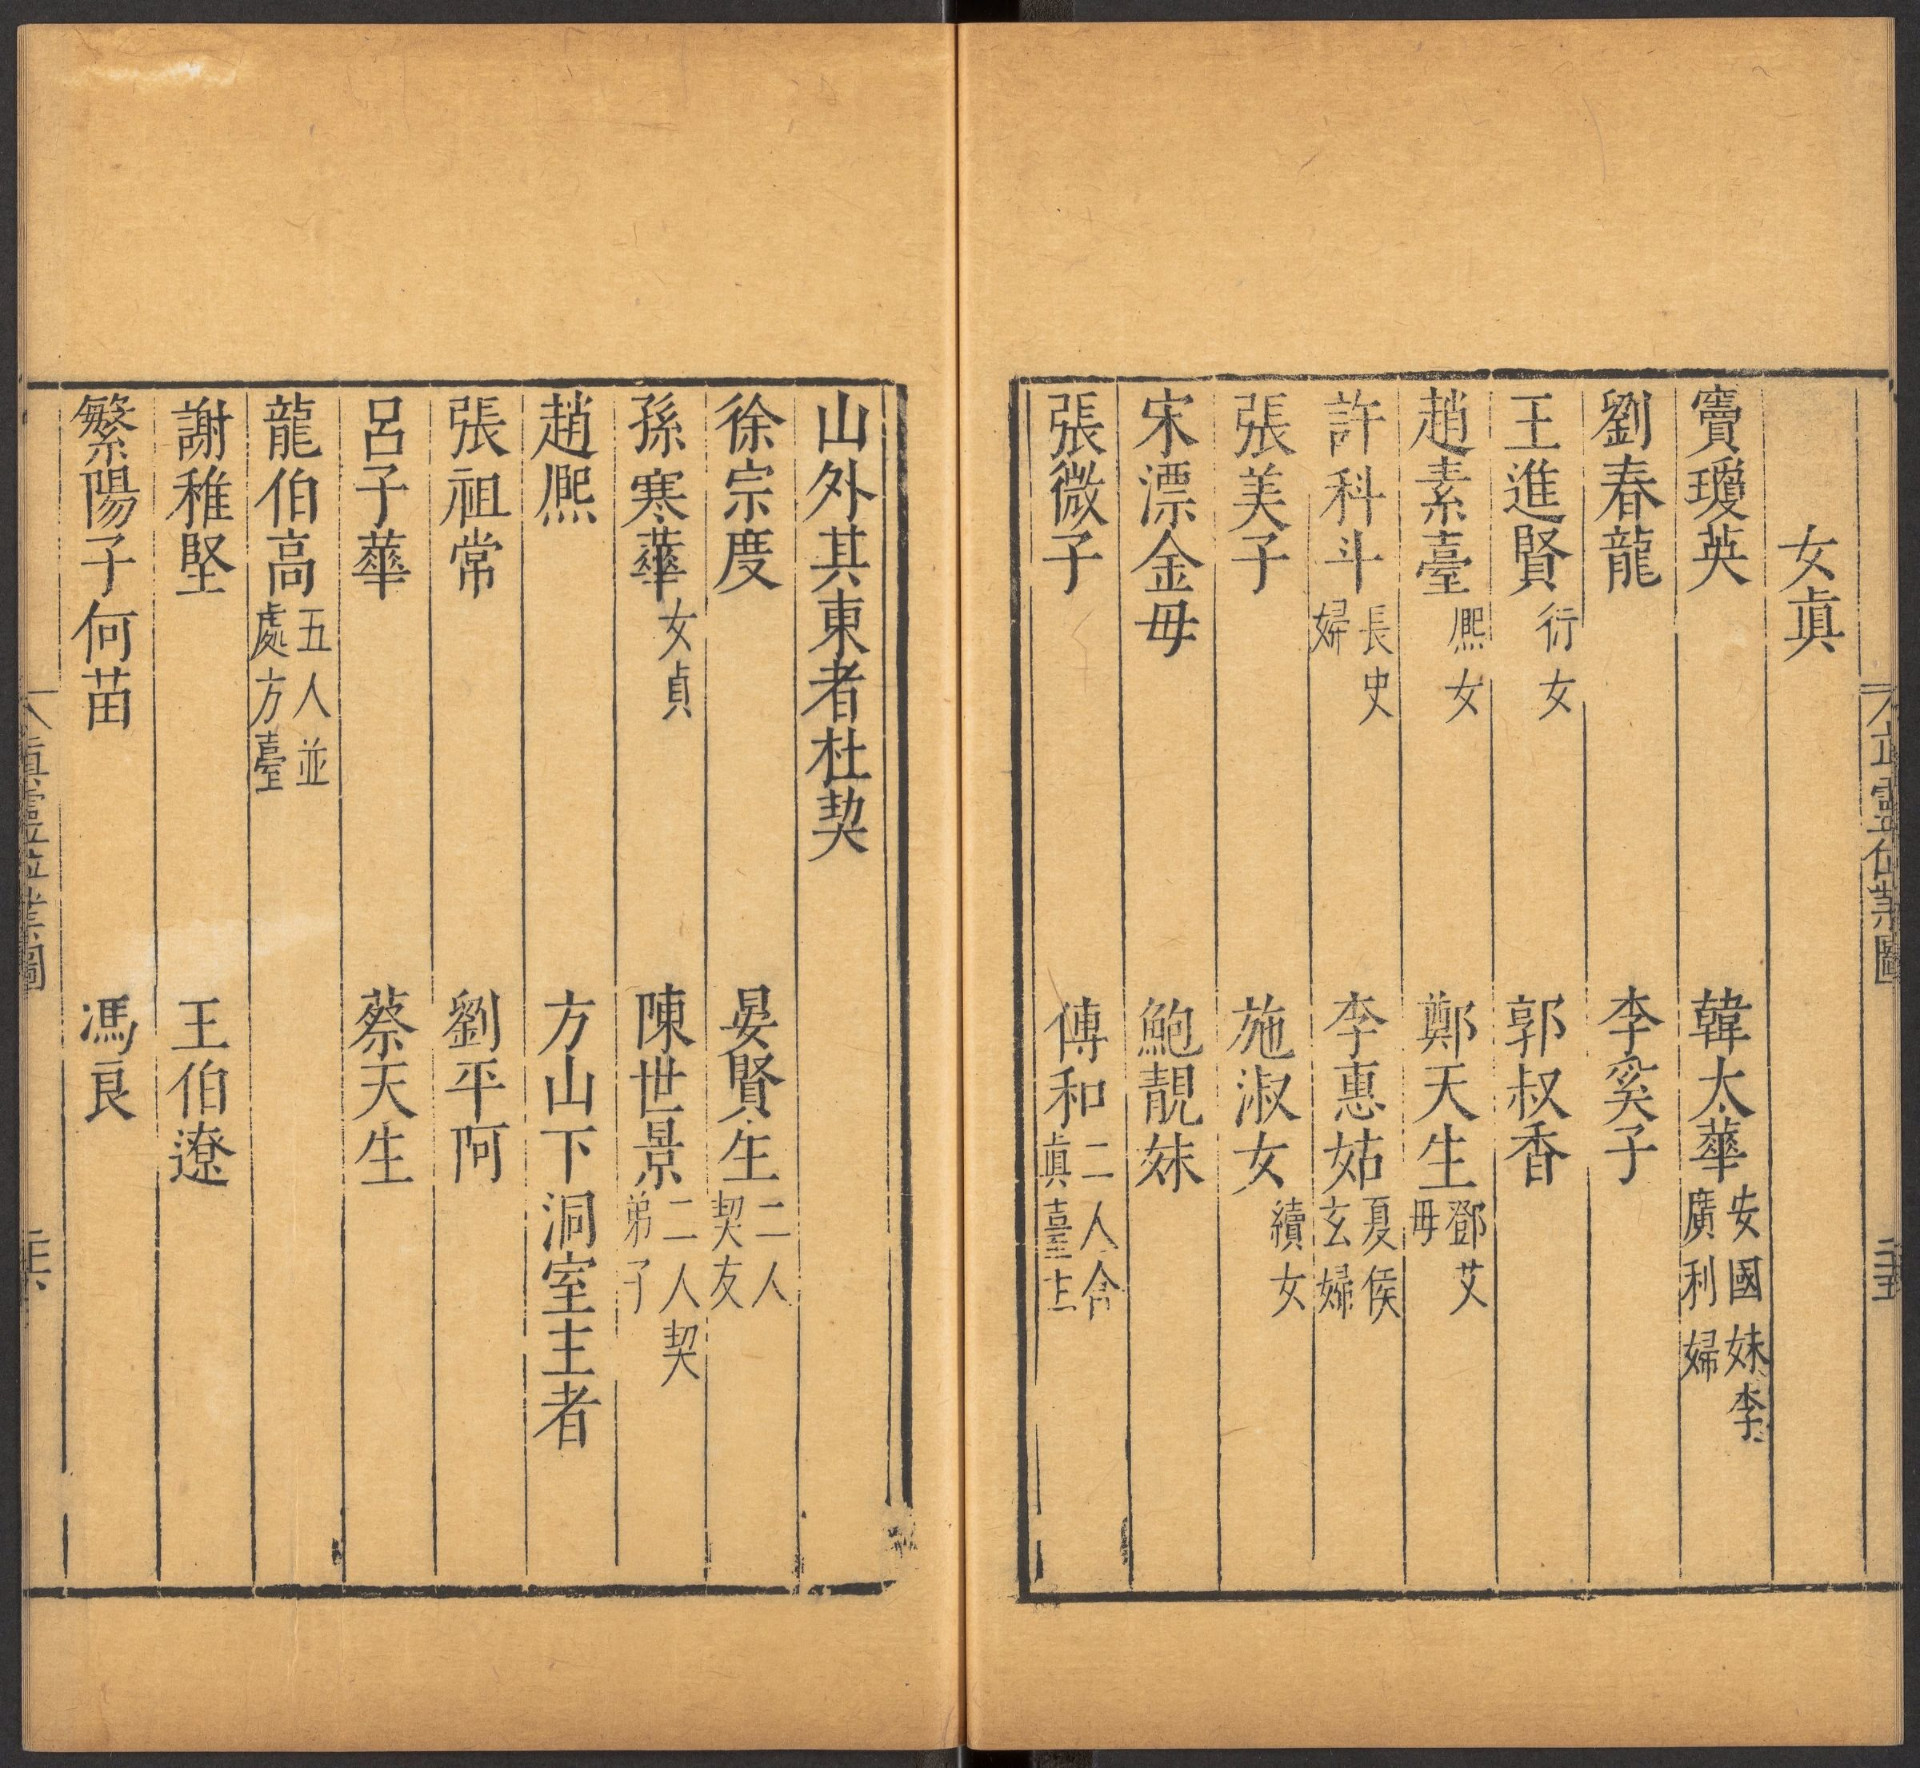 女眞
竇瓊英 韓太華 安國妹李廣利婦
劉春龍 李奚子
王進賢 衍女 郭叔香
趙素臺 熈女 鄭天生 鄧艾母
許科斗 長史婦 李惠姑 夏侯玄婦
張美子 施淑女 續女
宋漂金母 鮑靚妹
張微子 傅和 二人含眞臺主
山外其東者杜契
徐宗度 晏賢生 二人契友
孫寒華 女貞 陳世景 二人契弟子
趙熈 方山下洞室主者
張祖常 劉平阿
呂子華 蔡天生
龍伯高 五人並處方臺
謝稚堅 王伯遼
繁陽子何苗 馮良
眞靈位業圖